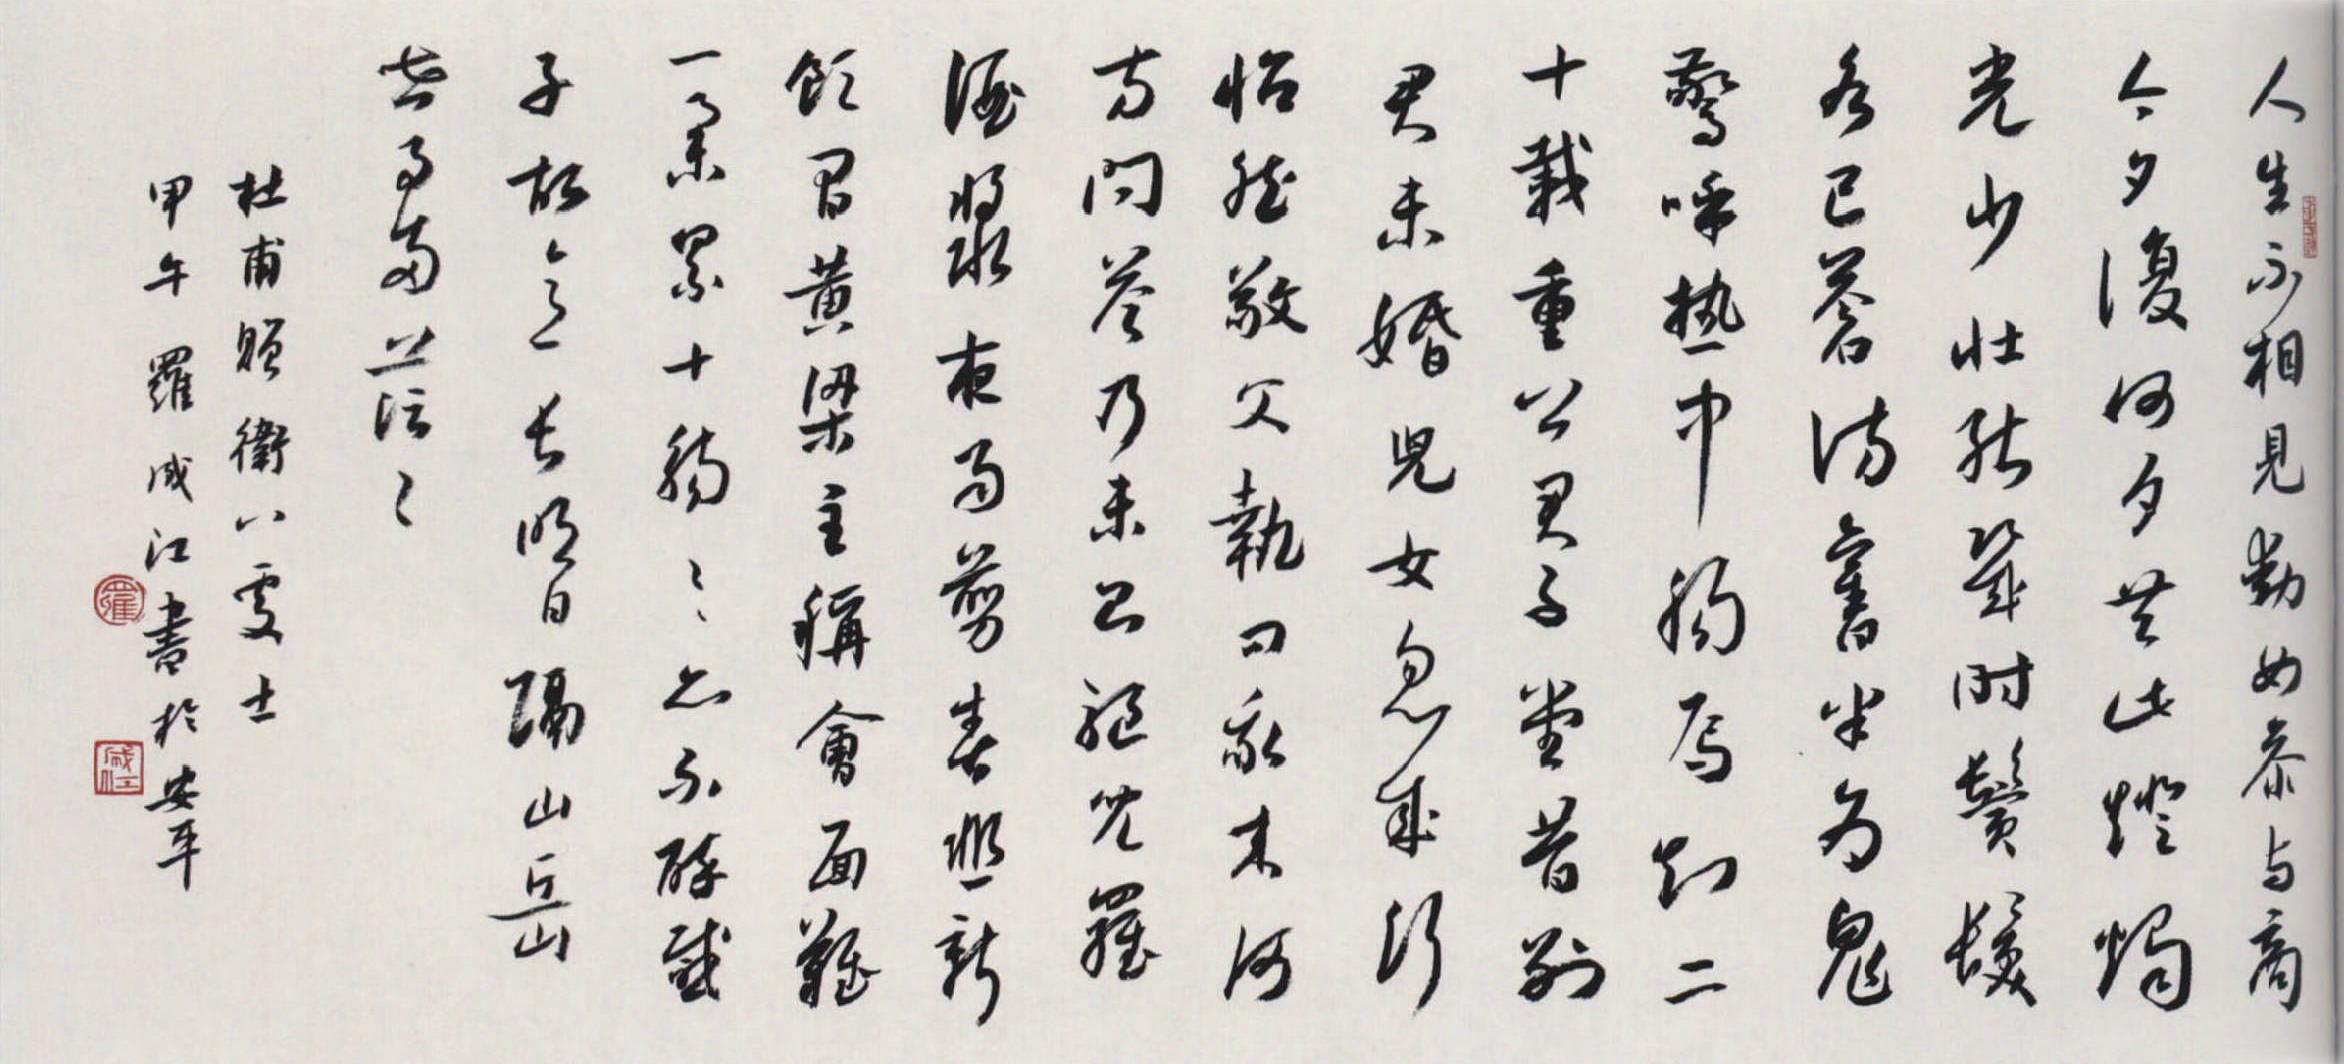 人生不相見動如參与商
今夕復何夕共此燈燭
光少壯能幾時鬢髮
各已蒼訪舊半為鬼
驚呼热中腸焉知二
十載重上君子堂昔別
君未婚兒女忽成行
怡然敬父執問我來何
方問答乃未已驅兒羅
酒漿夜雨剪春韭新
飲間黃粱主稱會面難
一舉累十觴々々亦不醉感
子故意長明日隔山岳
世事兩茫々
杜甫贈衛八處士
甲午羅成江書於安平
羅
成江